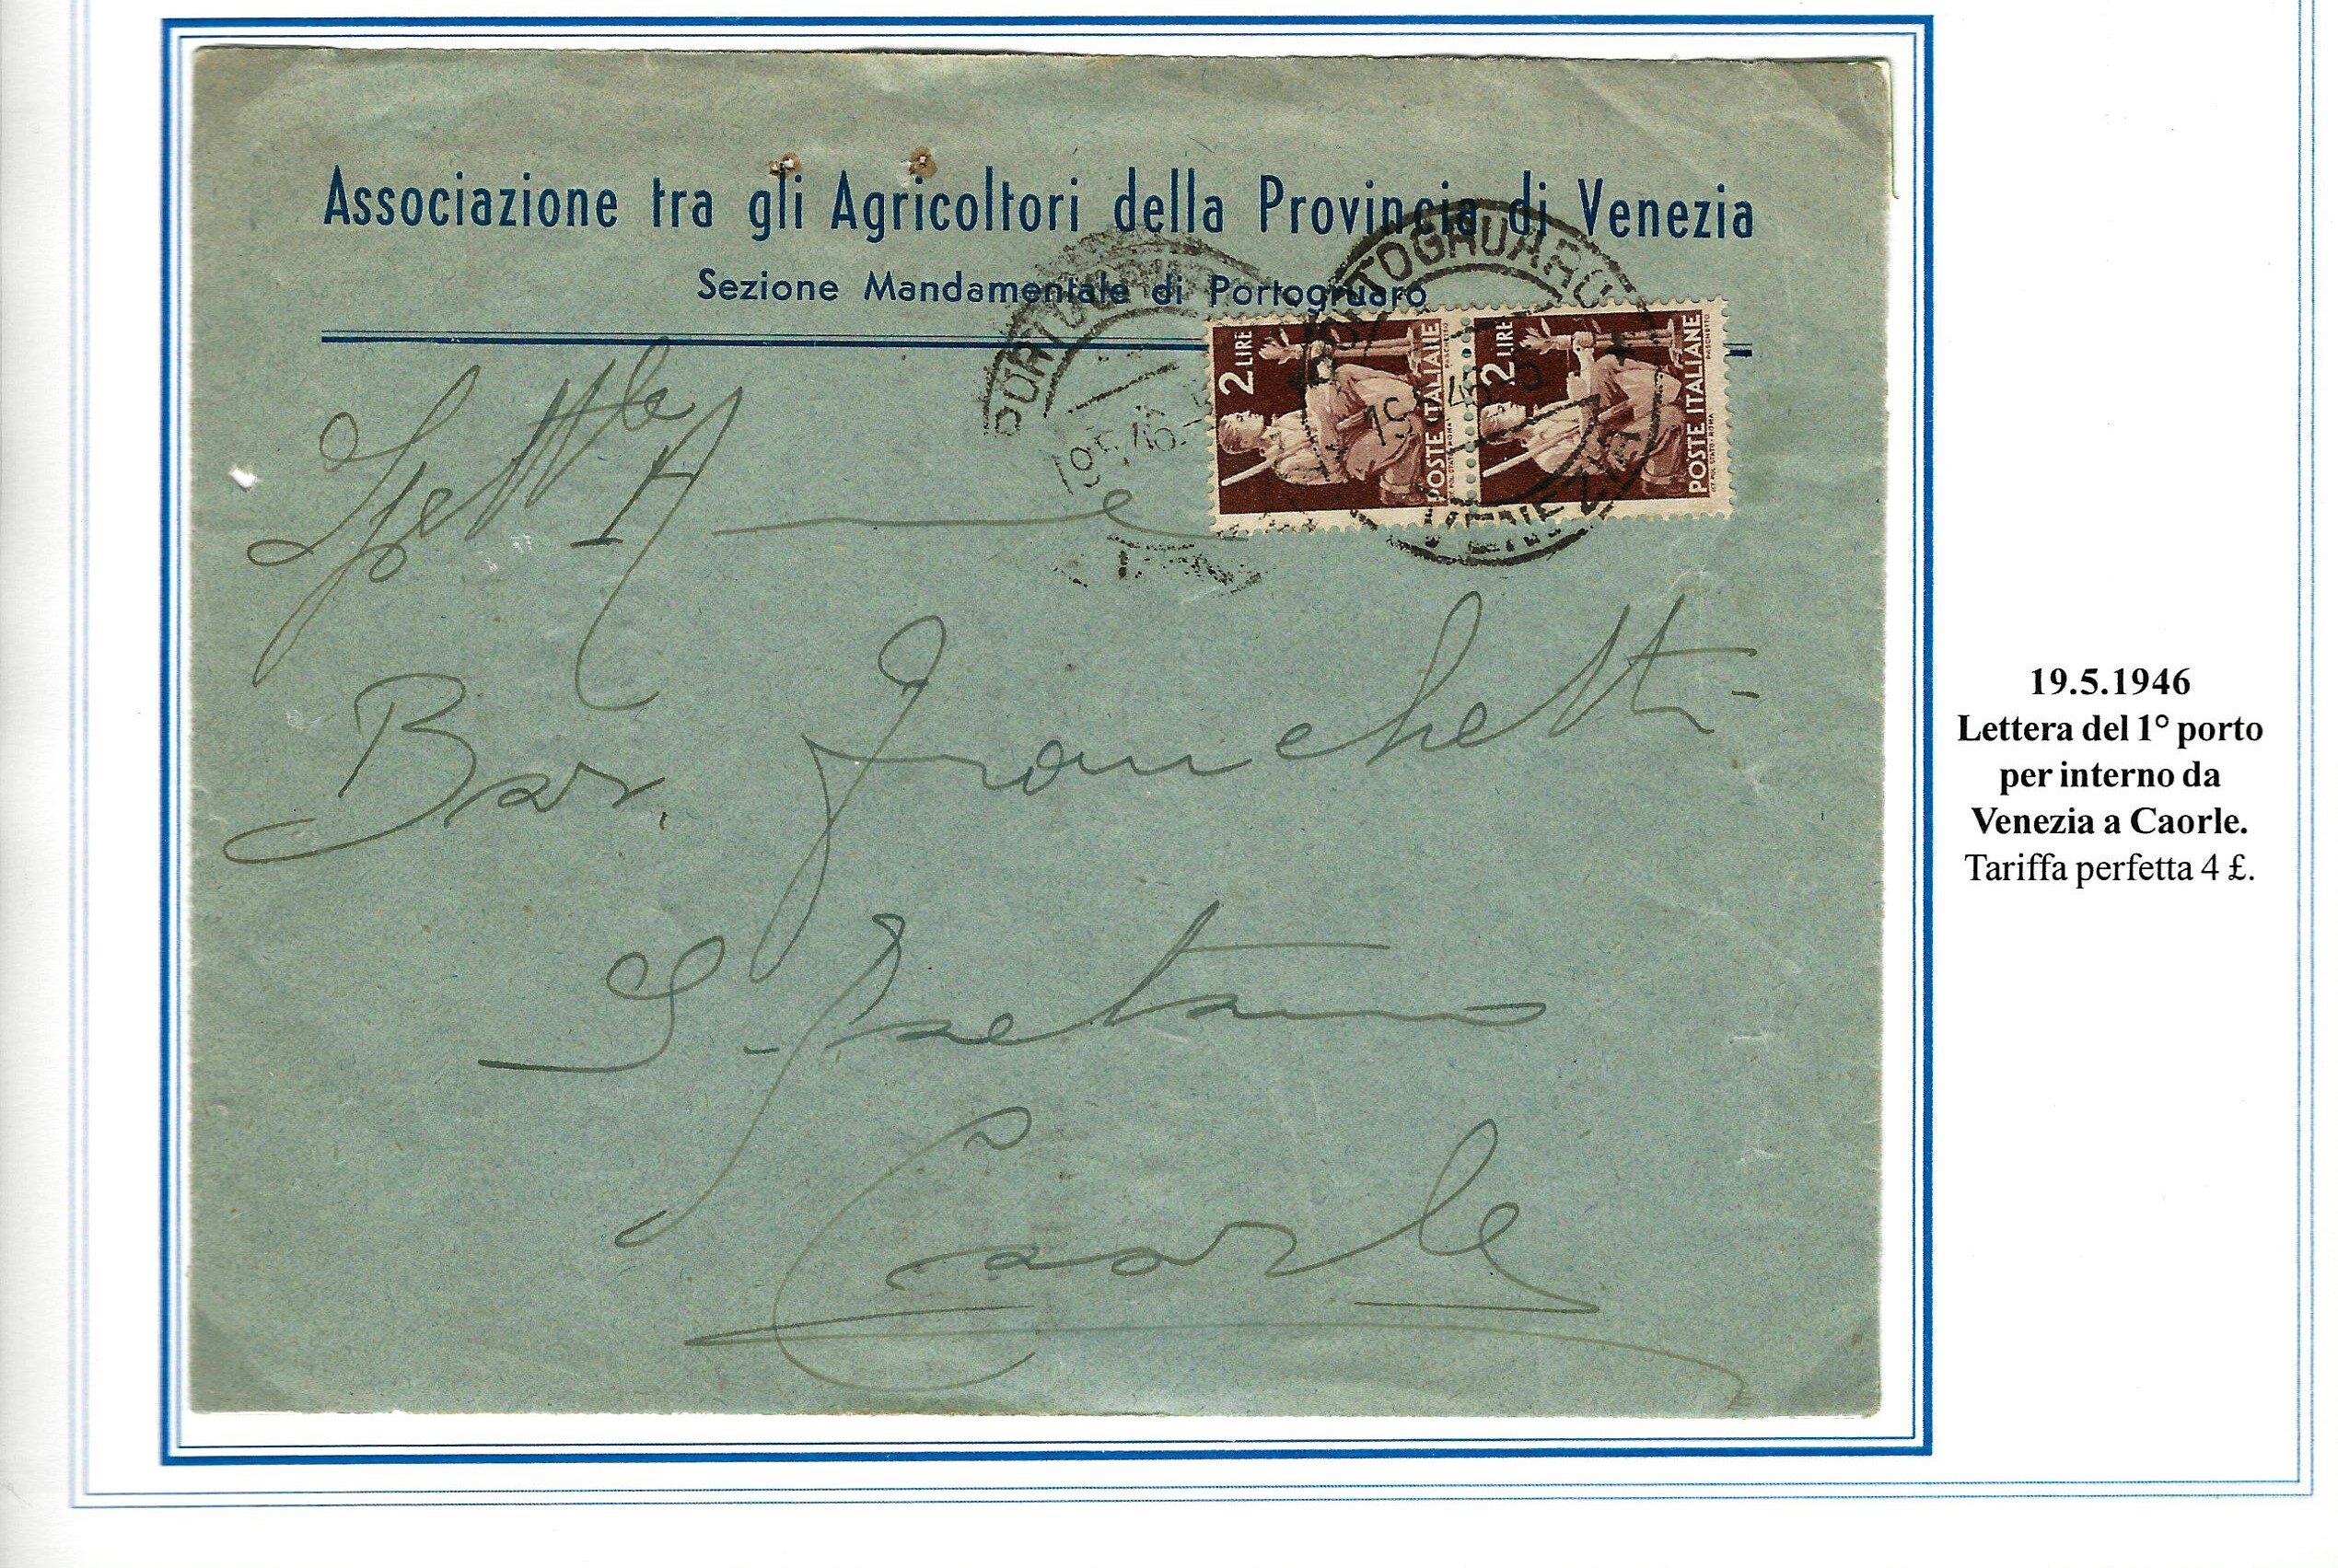 Associazione tra gli Agricoltori della Provincia di Venezia
Sezione Mandamentale di Portogruaro
PORTOGRUARO
19.5.46
PORTOGRUARO
19.5.46
VENEZIA
2 LIRE
POSTE ITALIANE
2 LIRE
POSTE ITALIANE
Spett.le
Bar. Franchetti
S. Gaetano
Caorle
19.5.1946
Lettera del 1° porto
per interno da
Venezia a Caorle.
Tariffa perfetta 4 £.